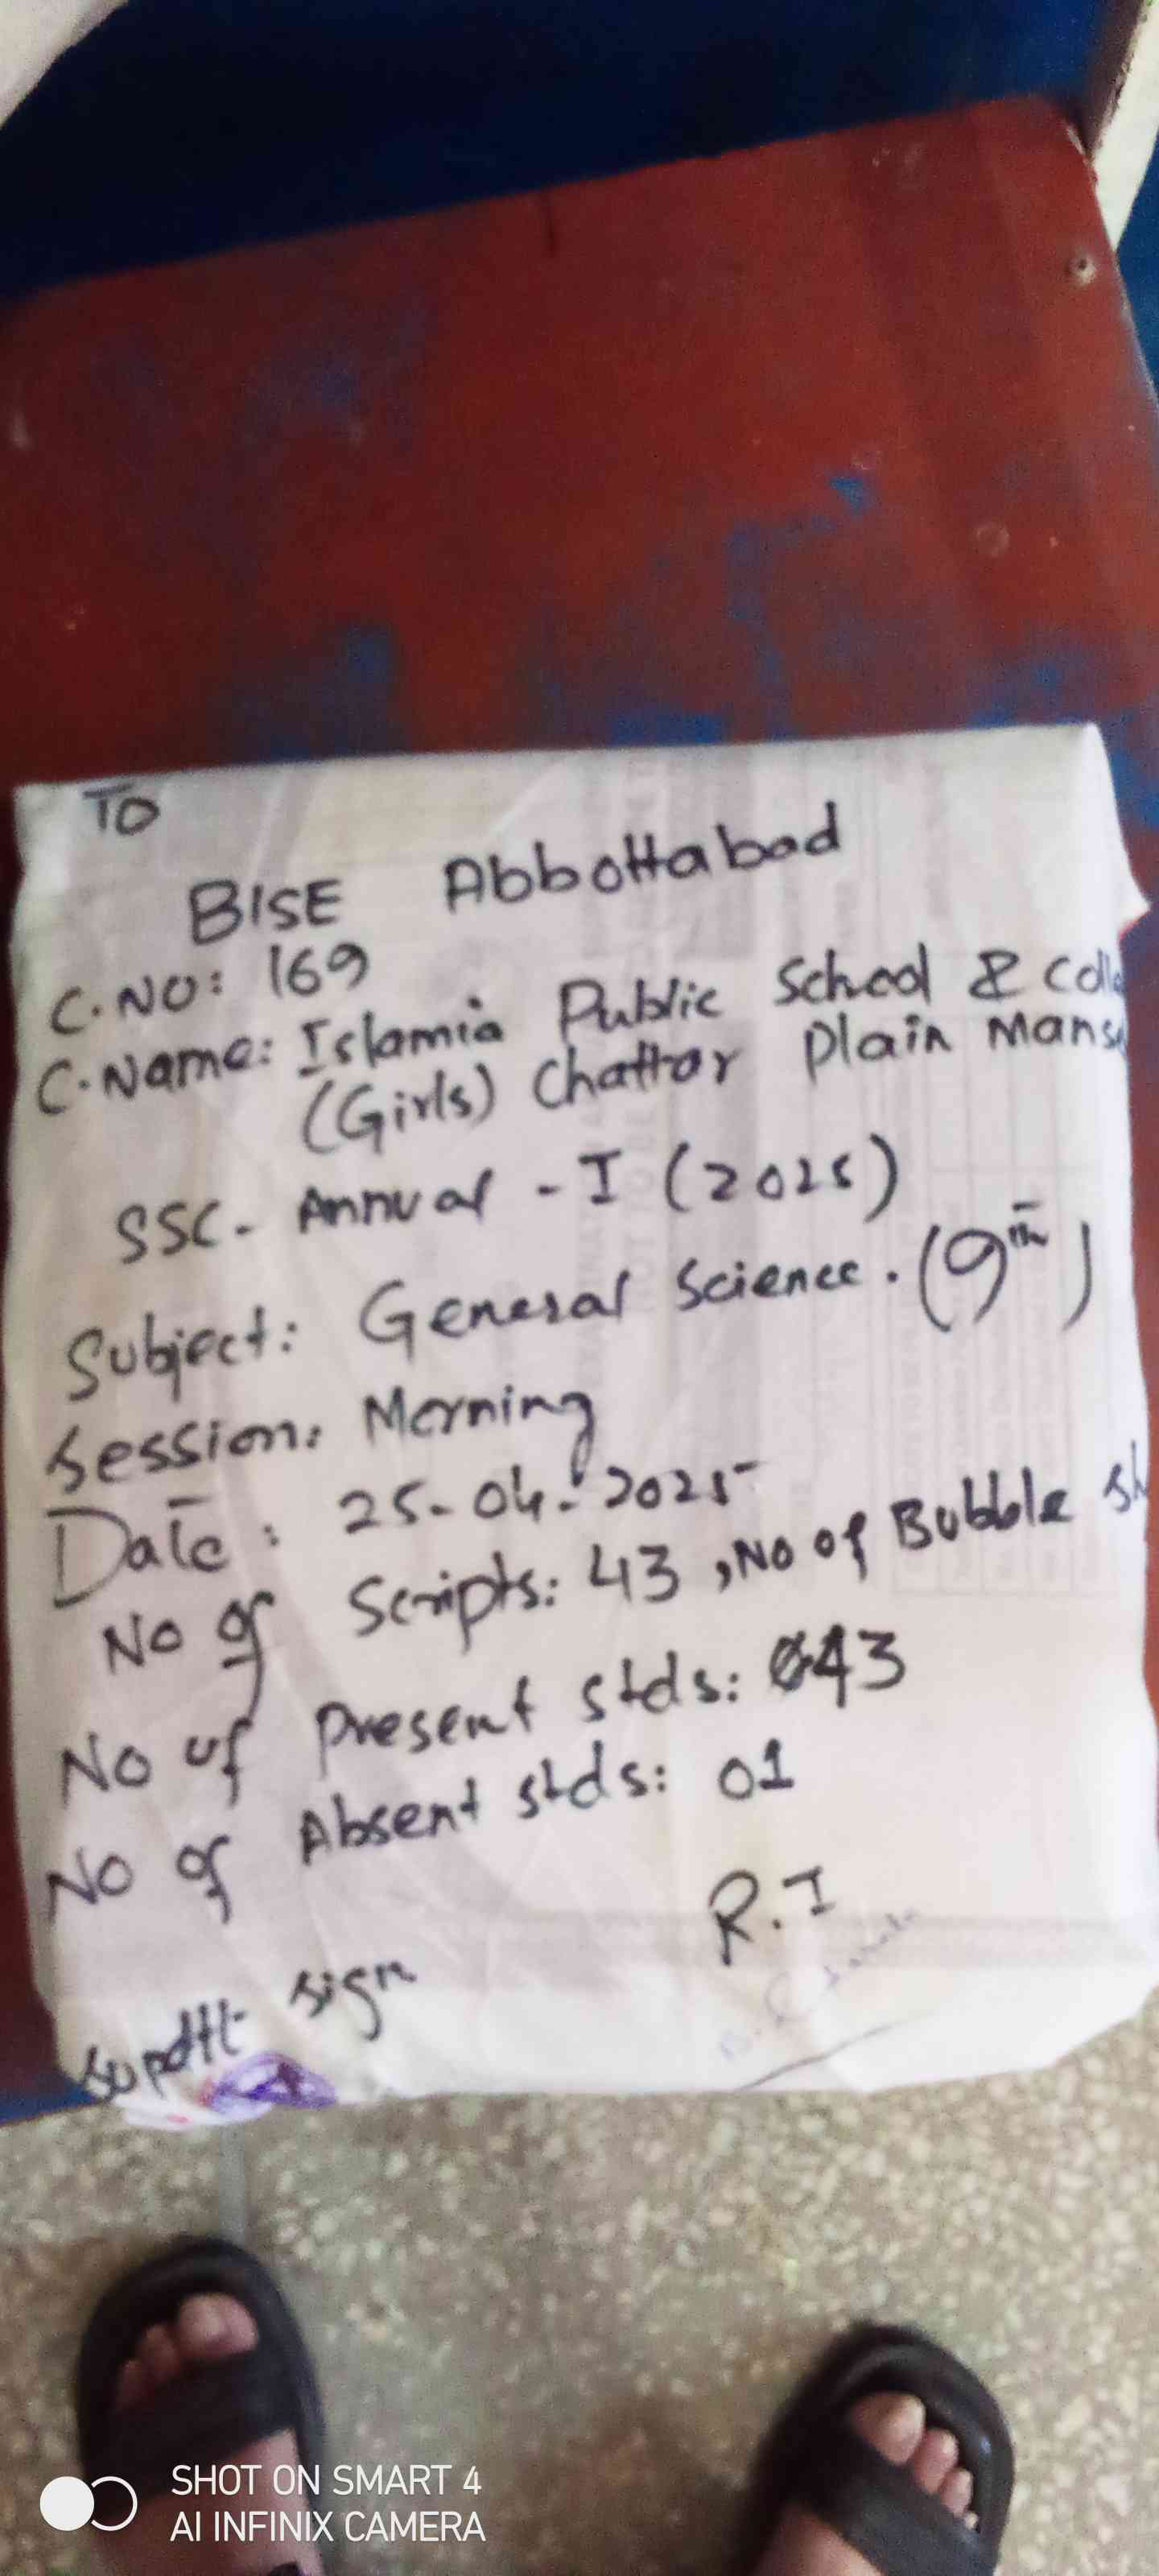 TO
BISE Abbottabad
C.NO: 169
C.Name: Islamia Public School &
(Girls) Chattar Plain
SSC- Annual - I (2025)
Subject: General Science. (9th)
Session: Morning
Date: 25-04-2025
No of Scripts: 43, No of Bubble
No of Present stds: 043
No of Absent stds: 01
R.I
Supdtt sign
SHOT ON SMART 4
AI INFINIX CAMERA